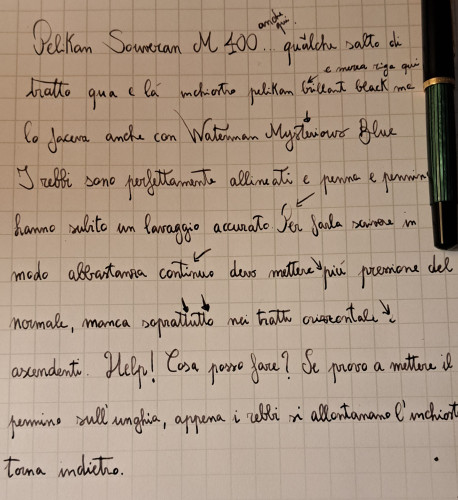 anche qui
Pelikan Souveran M 400... qualche salto di
e mezza riga qui
tratto qua e là inchiostro pelikan brillant black me
lo faceva anche con Waterman Mysterious Blue
I rebbi sono perfettamente allineati e penna e pennin
hanno subito un lavaggio accurato. Per farla scrivere in
modo abbastanza continuo devo mettere più pressione del
normale, manca soprattutto nei tratti orizzontali e
ascendenti. Help! Cosa posso fare? Se provo a mettere il
pennino sull'unghia, appena i rebbi si allontanano l'inchiost
torna indietro.